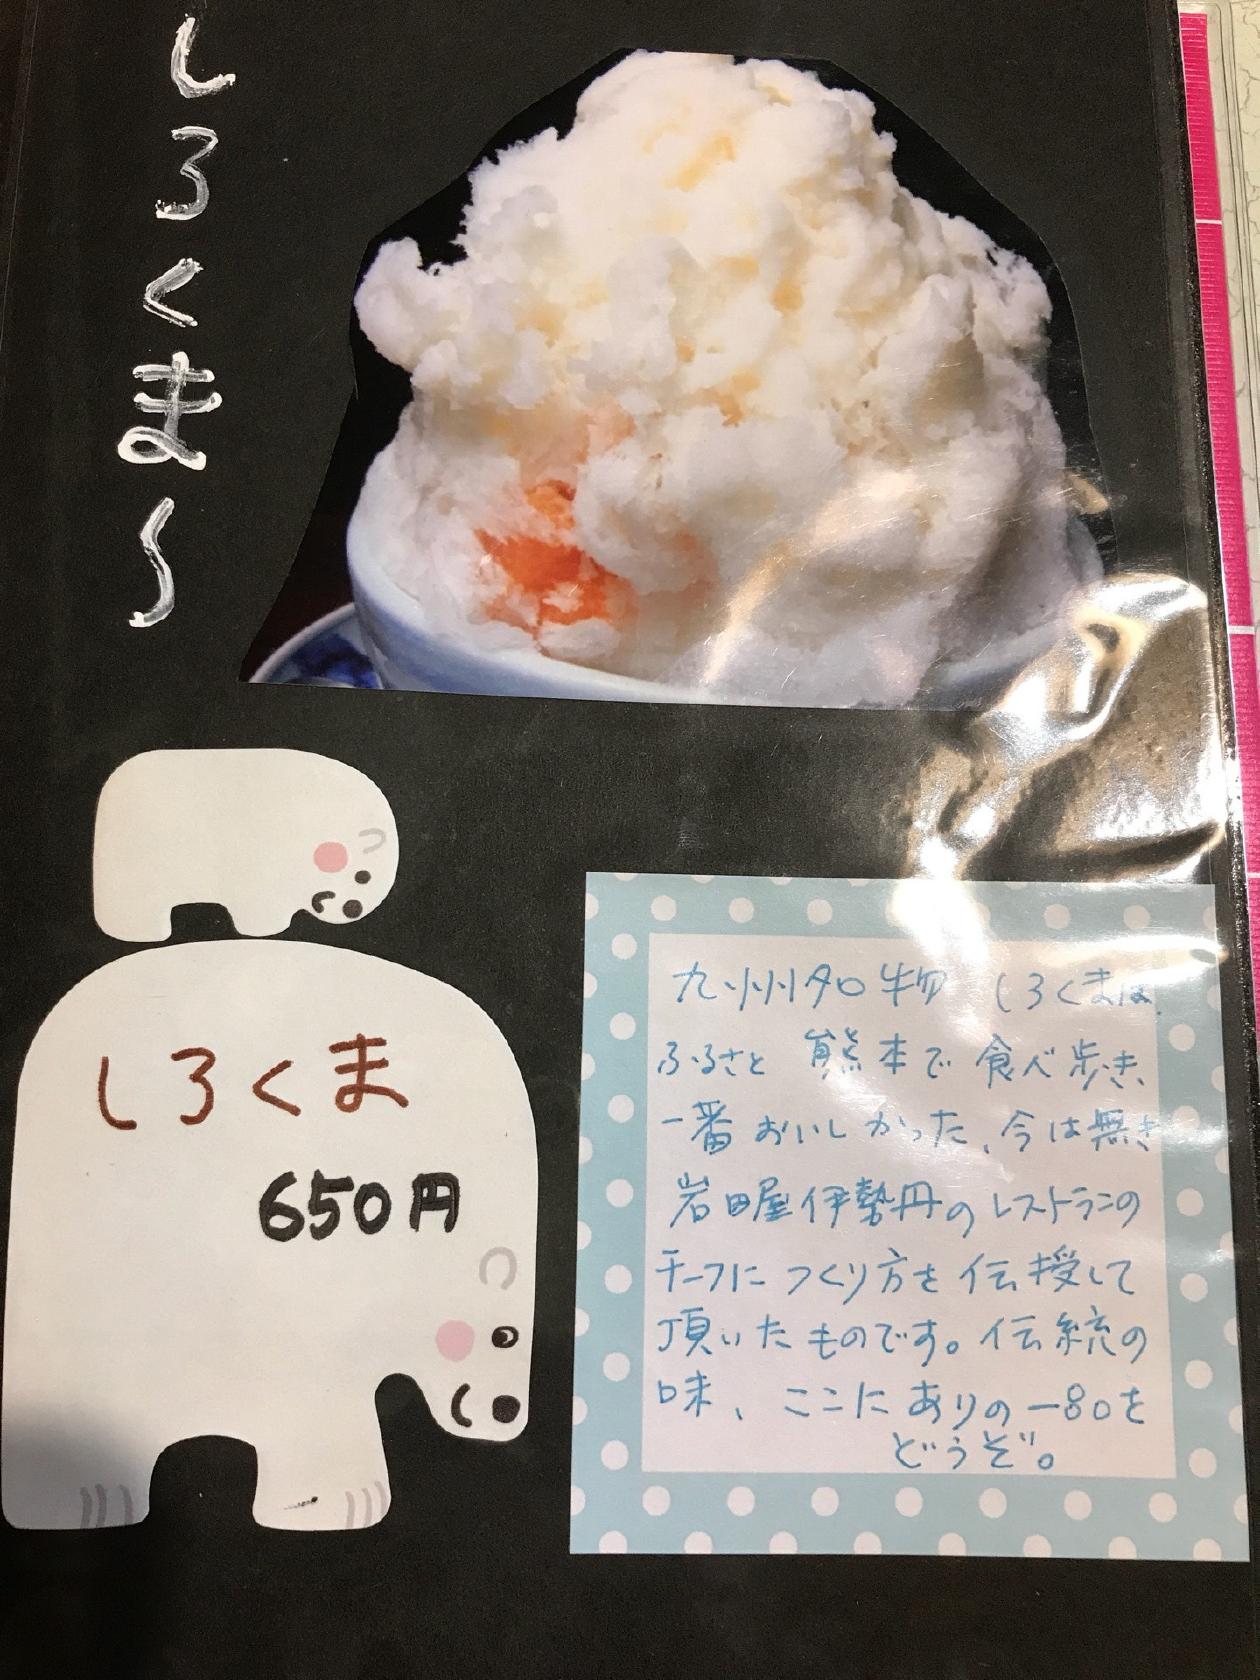 しろくま〜
しろくま
650円
九州名物 しろくまは、
ふるさと 熊本で 食べ歩き、
一番おいしかった、今は無き
岩田屋伊勢丹のレストランの
チーフに つくり方を 伝授して
頂いたものです。伝統の
味、ここにありの一品を
どうぞ。